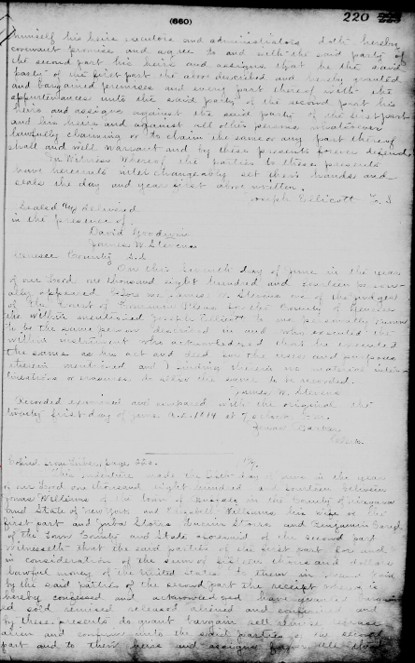 (660)
220
himself his heirs executors and administrators doth hereby
covenant promise and agree to and with the said party of
the second part his heirs and assigns that he the said
party of the first part the above described and hereby granted
and bargained premises and every part thereof with the
appurtenances unto the said party of the second part his
heirs and assigns against the said party of the first part
and his heirs and against all other persons whatsoever
lawfully claiming or to claim the same or any part thereof
shall and will warrant and by these presents forever defend
In Witness Whereof the parties to these presents
have hereunto interchangeably set their hands and
seals the day and year first above written.
Joseph Ellicott L.S
Sealed & delivered
in the presence of
David Goodwin
James W. Stevens
Genesee County S.S.
On this seventh day of June in the year
of our Lord one thousand eight hundred and fourteen
appeared before me James W. Stevens one of the judges
of the Court of Common Pleas for the County of Genesee
the within mentioned Joseph Ellicott to me personally known
to be the same person described in and who executed the
within instrument who acknowledged that he executed
the same as his act and deed for the uses and purposes
therein mentioned and I finding therein no material
or erasures do allow the same to be recorded.
James W. Stevens
Recorded examined and compared with the original the
twenty first day of June A.D. 1814 at
Clerk
This Indenture made the day of June in the year
of our Lord one thousand eight hundred and fourteen between
Jonas Williams of the town of in the County of Niagara
and State of New York and Williams his wife of the
first part and and Benjamin
of the Town County and State aforesaid of the second part
Witnesseth that the said parties of the first part for and
in consideration of the sum of sixteen dollars
lawful money of the United States to them in hand paid
by the said parties of the second part the receipt whereof is
hereby confessed and acknowledged have granted
sold remised released aliened and confirmed and
by these presents do grant bargain sell remise release
alien and confirm unto the said parties of the second
part and to their heirs and assigns forever all that